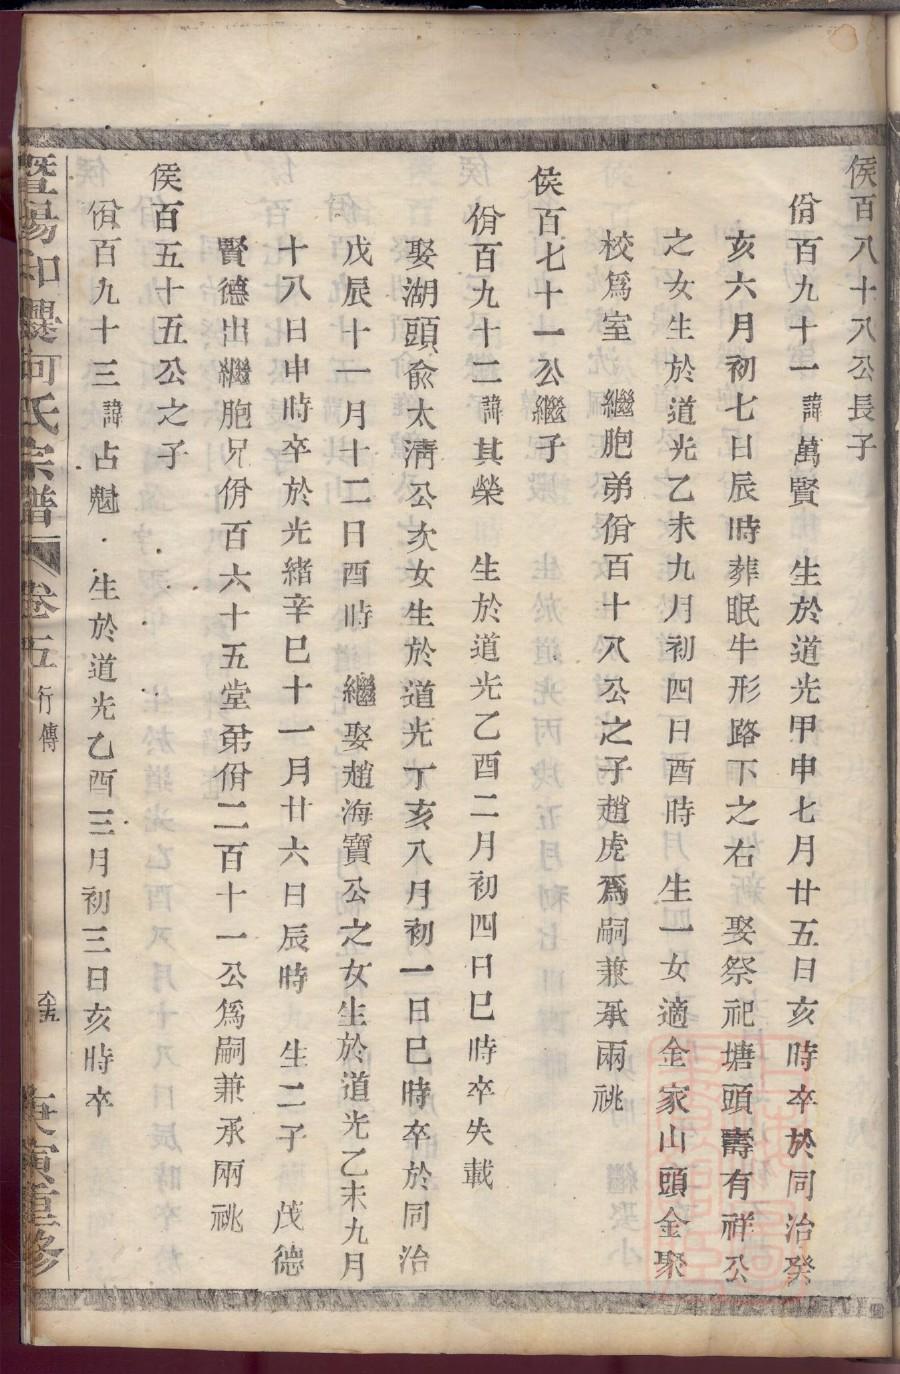 侯百八十八公長子
佾百九十一諱萬賢　生於道光甲申七月廿五日亥時卒於同治癸
亥六月初七日辰時葬眠牛形路下之右　娶祭祀塘頭壽有祥公
之女生於道光乙未九月初四日酉時　生一女適金家山頭金聚
校爲室　繼胞弟佾百十八公之子趙虎爲嗣兼承兩祧
侯百七十一公繼子
佾百九十二諱其榮　生於道光乙酉二月初四日巳時卒失載
娶湖頭俞太清公次女生於道光丁亥八月初一日巳時卒於同治
戊辰十一月十二日酉時　繼娶趙海寶公之女生於道光乙未九月
十八日申時卒於光緒辛巳十一月廿六日辰時　生二子　茂德
賢德出繼胞兄佾百六十五堂弟佾二百十一公爲嗣兼承兩祧
侯百五十五公之子
佾百九十三諱占魁　生於道光乙酉三月初三日亥時卒
暨陽和㘰何氏宗譜　卷五　行傳